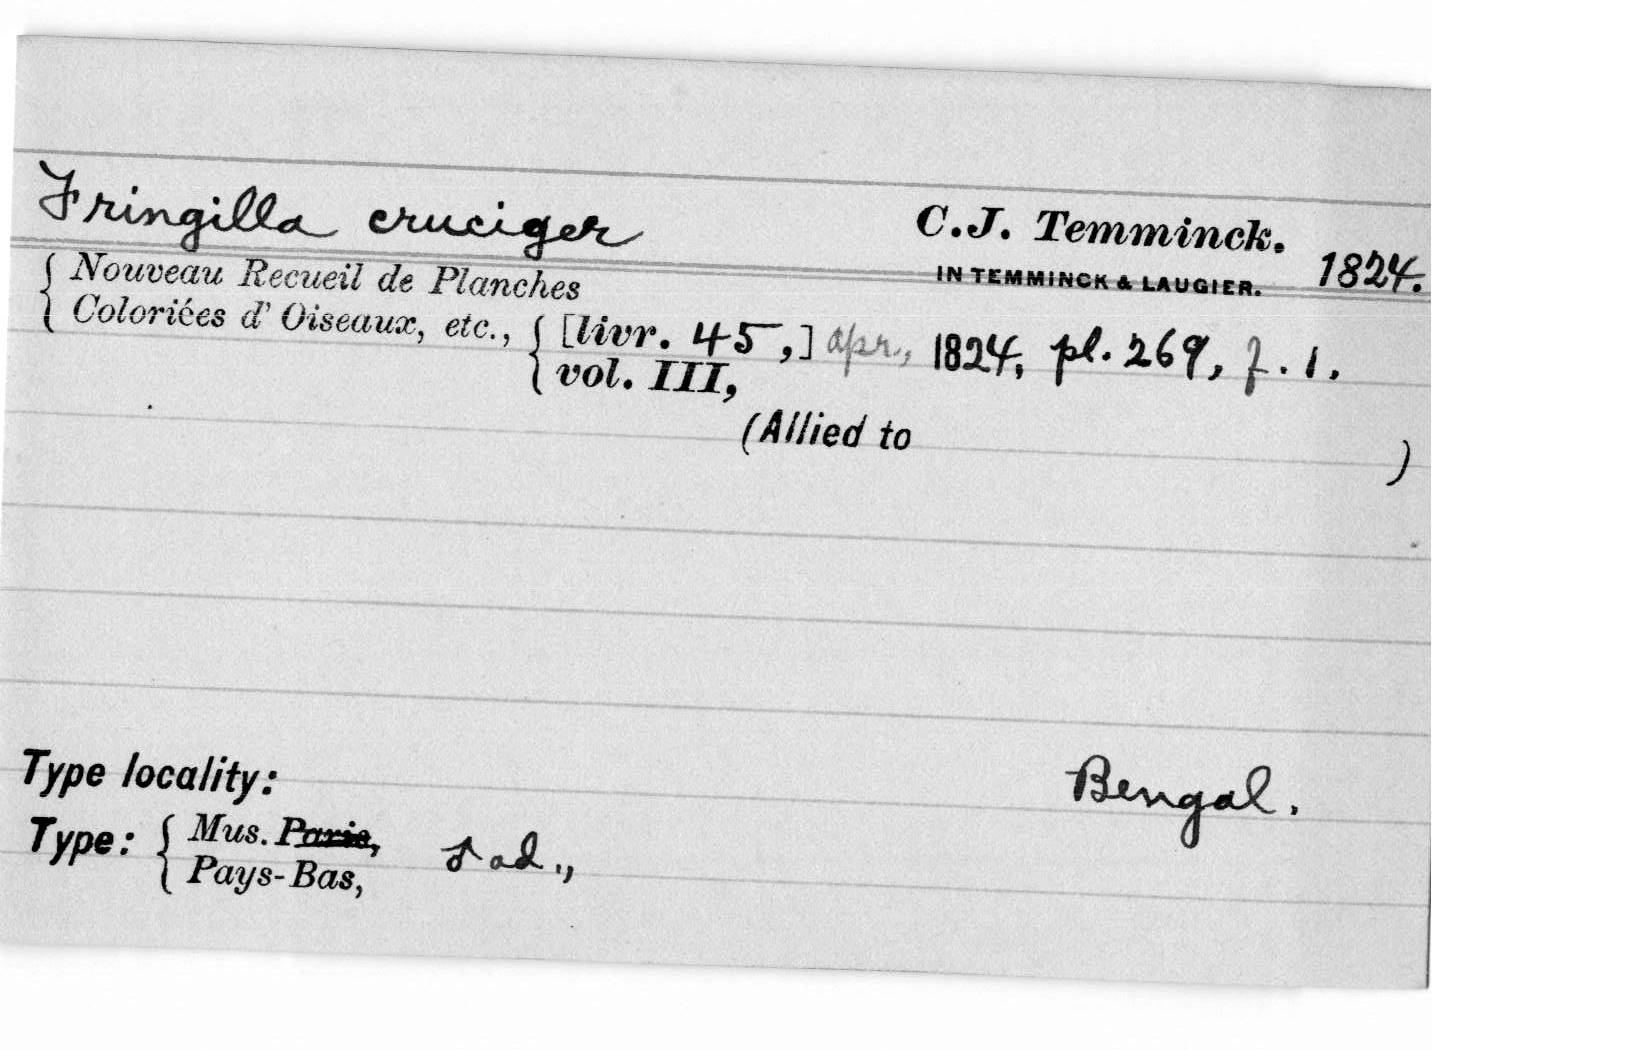 Fringilla cruciger C.J. Temminck.
IN TEMMINCK & LAUGIER. 1824.
{ Nouveau Recueil de Planches
Coloriées d' Oiseaux, etc., { [livr. 45,] apr., 1824, pl. 269, f. 1.
vol. III,
(Allied to )
Type locality: Bengal.
Type: { Mus. Paris,
Pays-Bas, ♂ ad.,